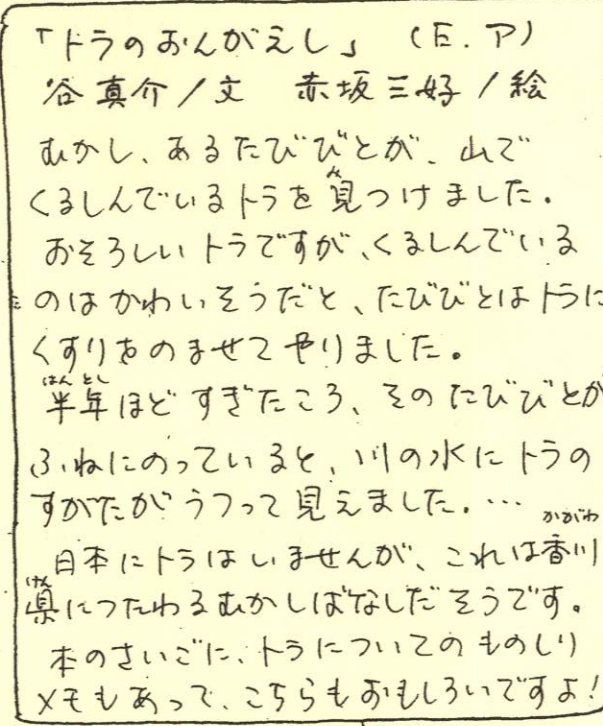 「トラのおんがえし」 (E.ア)
谷真介/文 赤坂三好/絵
むかし、あるたびびとが、山で
くるしんでいるトラを見つけました。
おそろしいトラですが、くるしんでいる
のはかわいそうだと、たびびとはトラに
くすりをのませてやりました。
半年ほどすぎたころ、そのたびびとが
ふねにのっていると、川の水にトラの
すがたがうつって見えました。…
日本にトラはいませんが、これは香川
県につたわるむかしばなしだそうです。
本のさいごに、トラについてのものしり
メモもあって、こちらもおもしろいですよ!